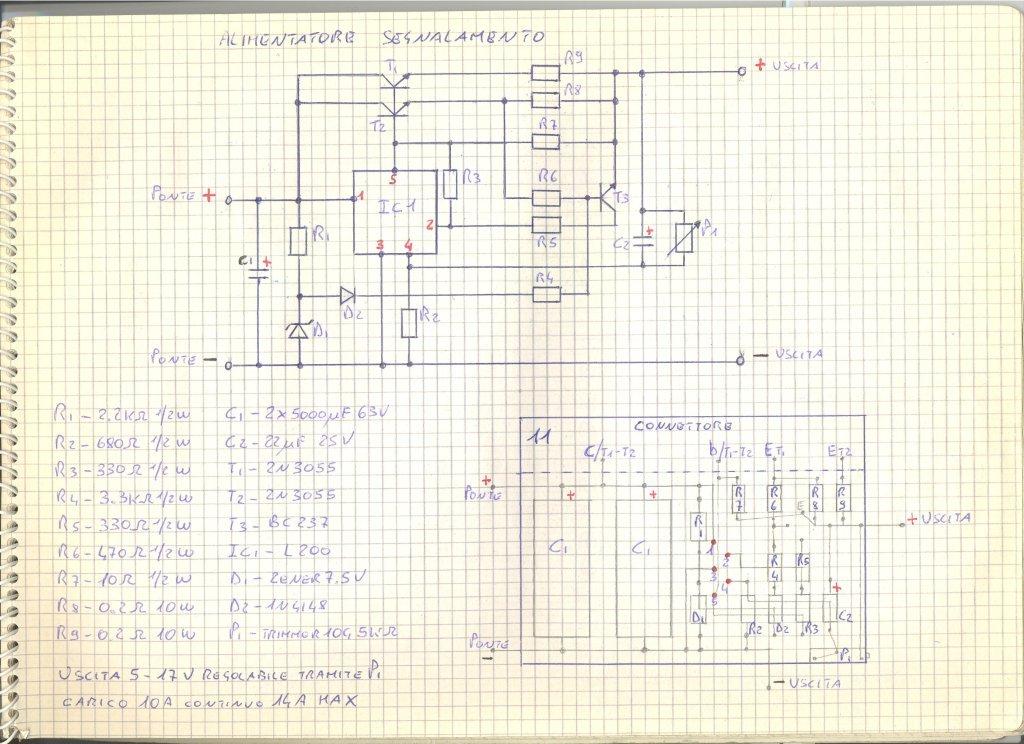 ALIMENTATORE SEGNALAMENTO
T1
R9
+ USCITA
R8
T2
R7
5
R3
R6
T3
PONTE +
1
IC1
2
R1
R5
C2
+
P1
3
4
C1
+
R4
D2
R2
D1
PONTE -
- USCITA
R1 - 2.2KΩ 1/2W
R2 - 680Ω 1/2W
R3 - 330Ω 1/2W
R4 - 3.3KΩ 1/2W
R5 - 330Ω 1/2W
R6 - 470Ω 1/2W
R7 - 10Ω 1/2W
R8 - 0.2Ω 10W
R9 - 0.2Ω 10W
C1 - 2x5000µF 63V
C2 - 22µF 25V
T1 - 2N3055
T2 - 2N3055
T3 - BC237
IC1 - L200
D1 - ZENER 7,5V
D2 - 1N4148
USCITA 5 - 17V REGOLABILE TRAMITE P1
CARICO 10A CONTINUO 14A MAX
11
CONNETTORE
C/T1-T2
b/T1-T2
ET1
ET2
+
PONTE
+
+
R7
R6
E
R8
R9
R1
+ USCITA
C1
C1
1
2
3
4
5
R4
R5
+
D1
R2
D2
R3
C2
PONTE
-
P1
- USCITA